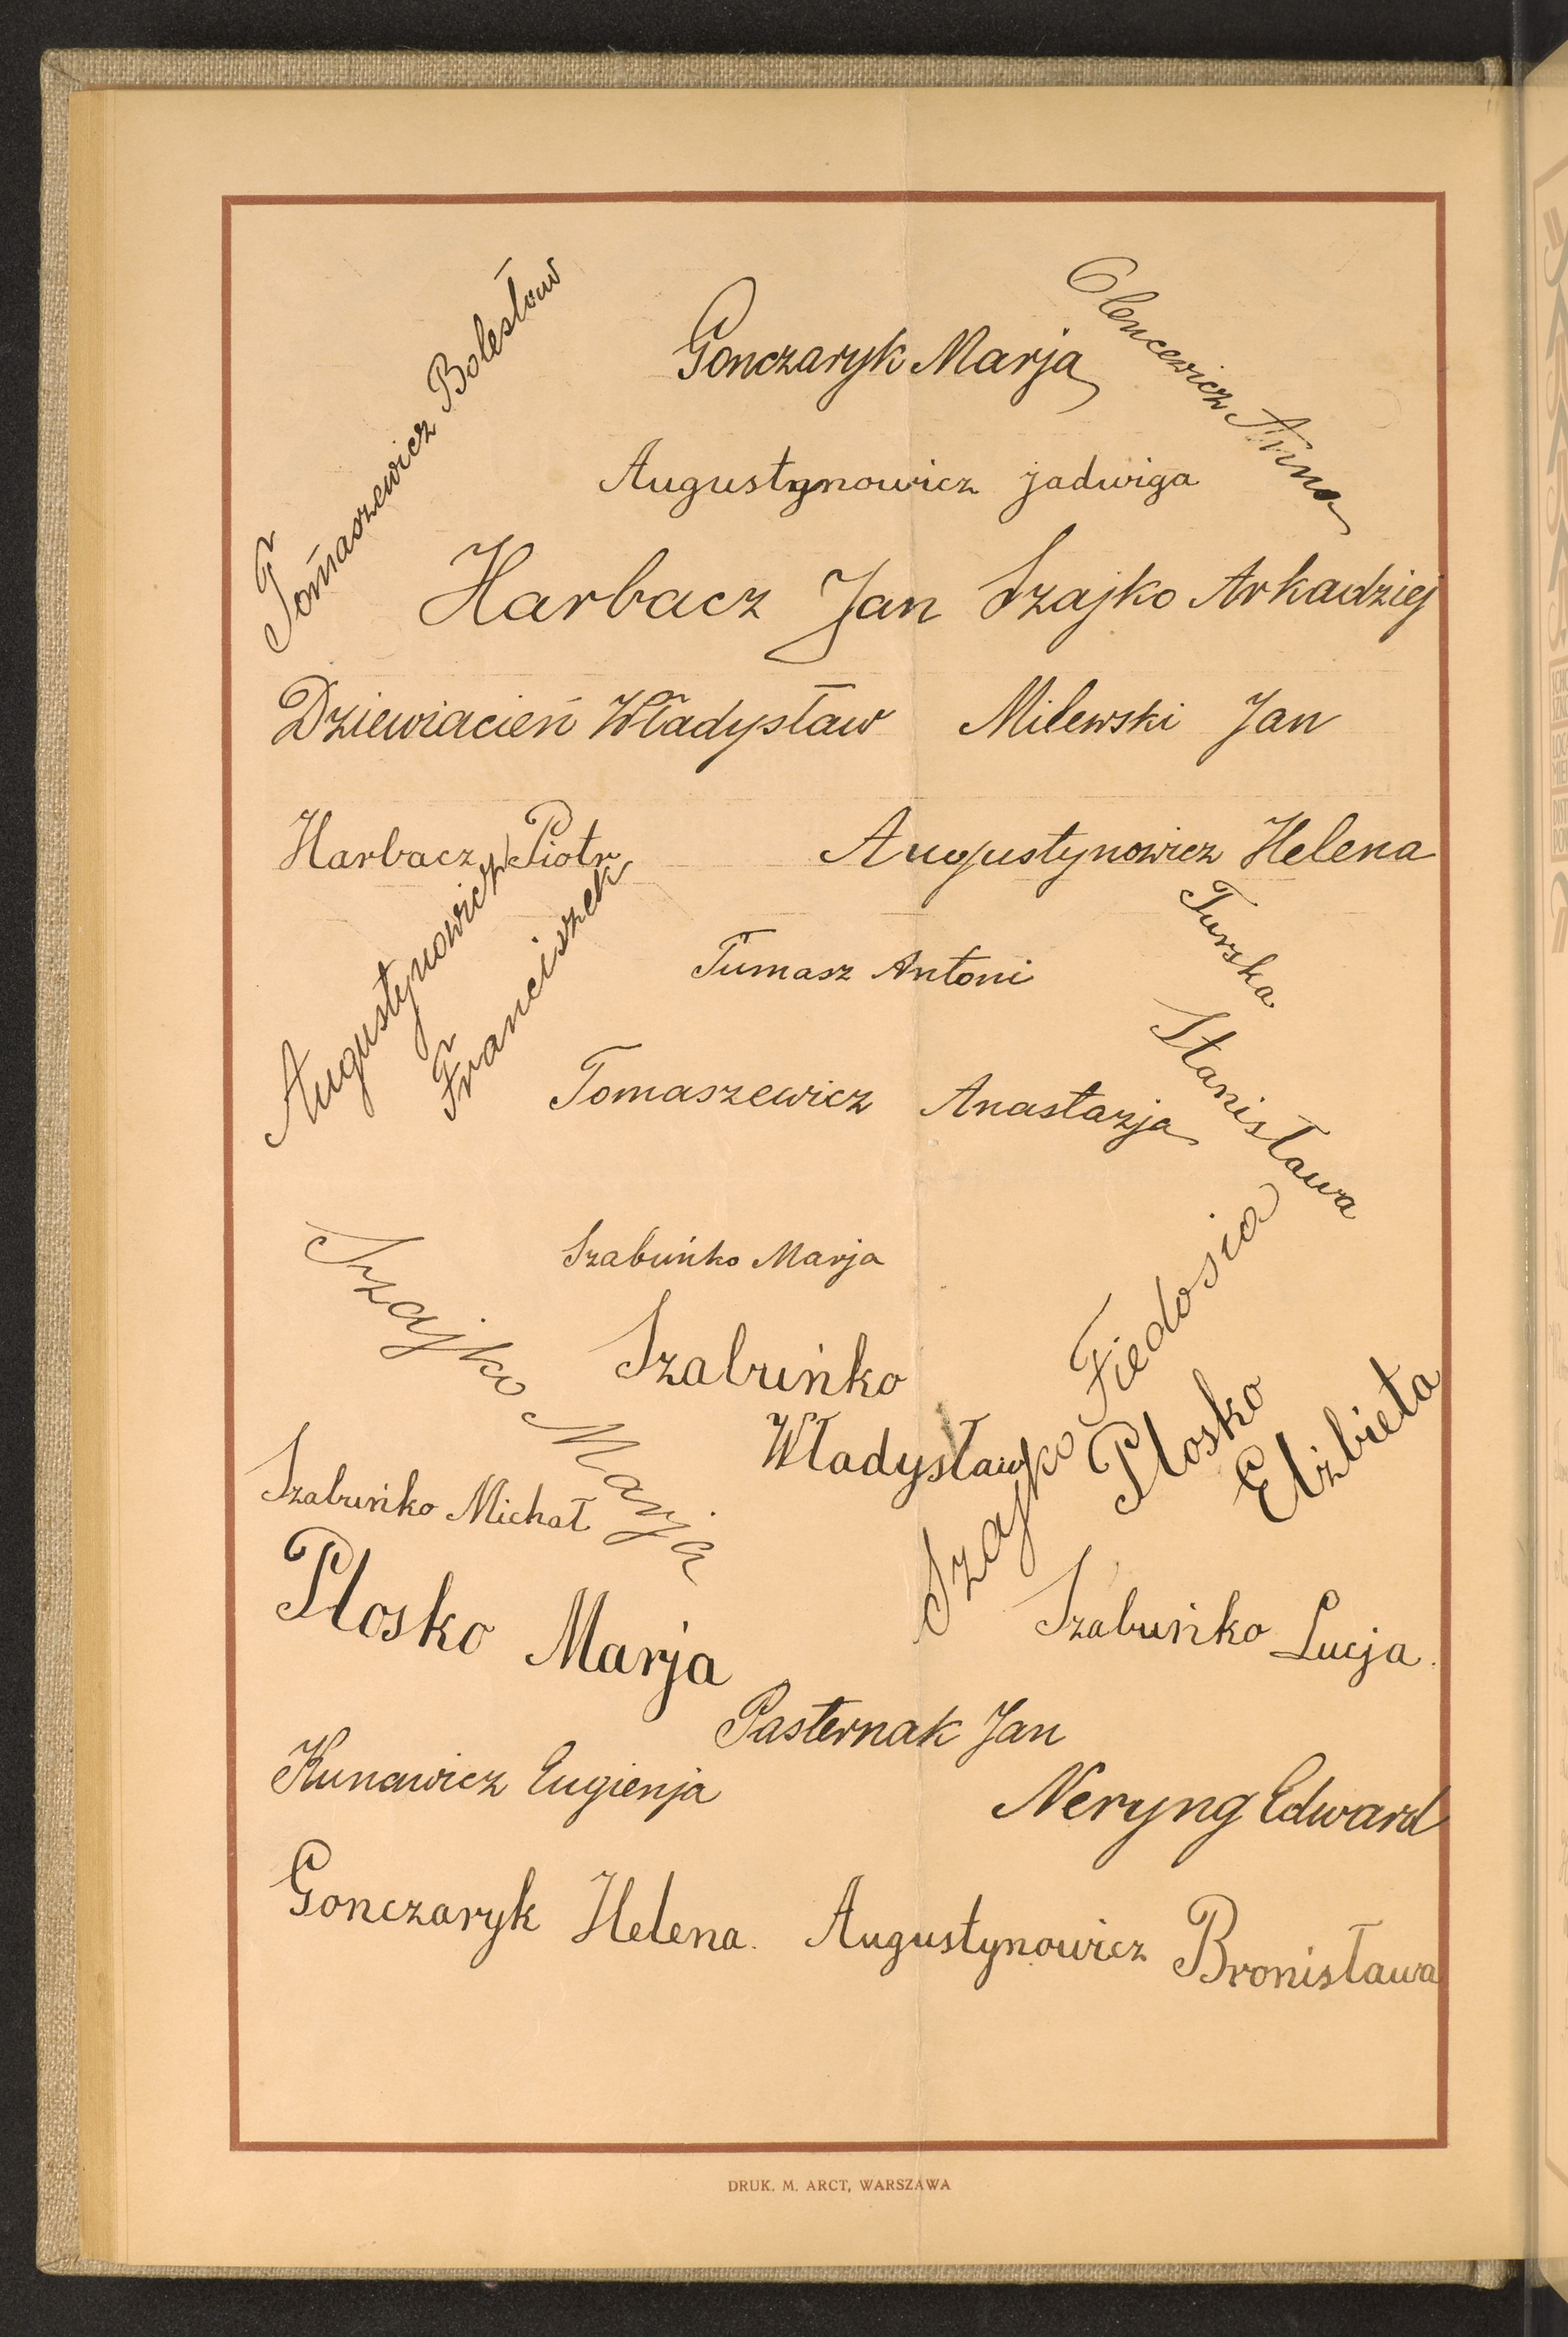 Tomaszewicz Bolesław
Gonczaryk Marja
Olencewicz Anna
Augustynowicz Jadwiga
Harbacz Jan
Szajko Arkadziej
Dziewiacień Władysław
Milewski Jan
Harbacz Piotr
Augustynowicz Helena
Augustynowicz
Franciszek
Tumasz Antoni
Turska
Stanisława
Tomaszewicz Anastazja
Szabuńko Marja
Szajko Marja
Szabuńko
Władysław
Szajko Fiedosia
Plosko
Elżbieta
Szabuńko Michał
Plosko Marja
Szabuńko Lucja.
Pasternak Jan
Kunawicz Eugienja
Neryng Edward
Gonczaryk Helena.
Augustynowicz Bronisława
DRUK. M. ARCT, WARSZAWA